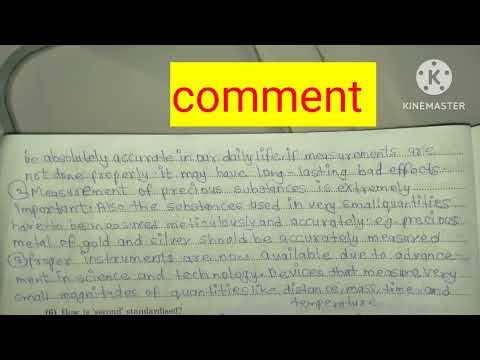 KINEMASTER
comment
be absolutely accurate in our daily life. if measurements are
not done properly it may have long-lasting bad effects.
② Measurement of precious substances is extremely
important. Also the substances used in very small quantities
have to be measured meticulously and accurately: eg. precious
metal of gold and silver should be accurately measured
③ Proper instruments are now available due to advance-
ment in science and technology. Devices that measure very
small magnitudes of quantities like distance, mass, time, and
temperature
(6) How is 'second' standardised?